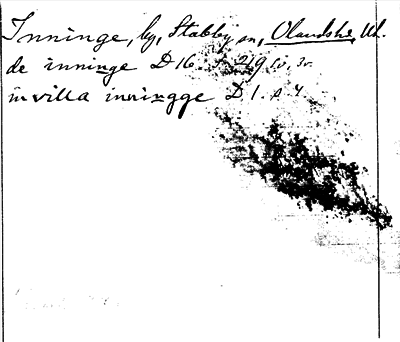 Inninge, by, Stabby sn, Olandshd, Ud.
de inninge D 16. f. 219 v.
in villa inningge D 1. s 4